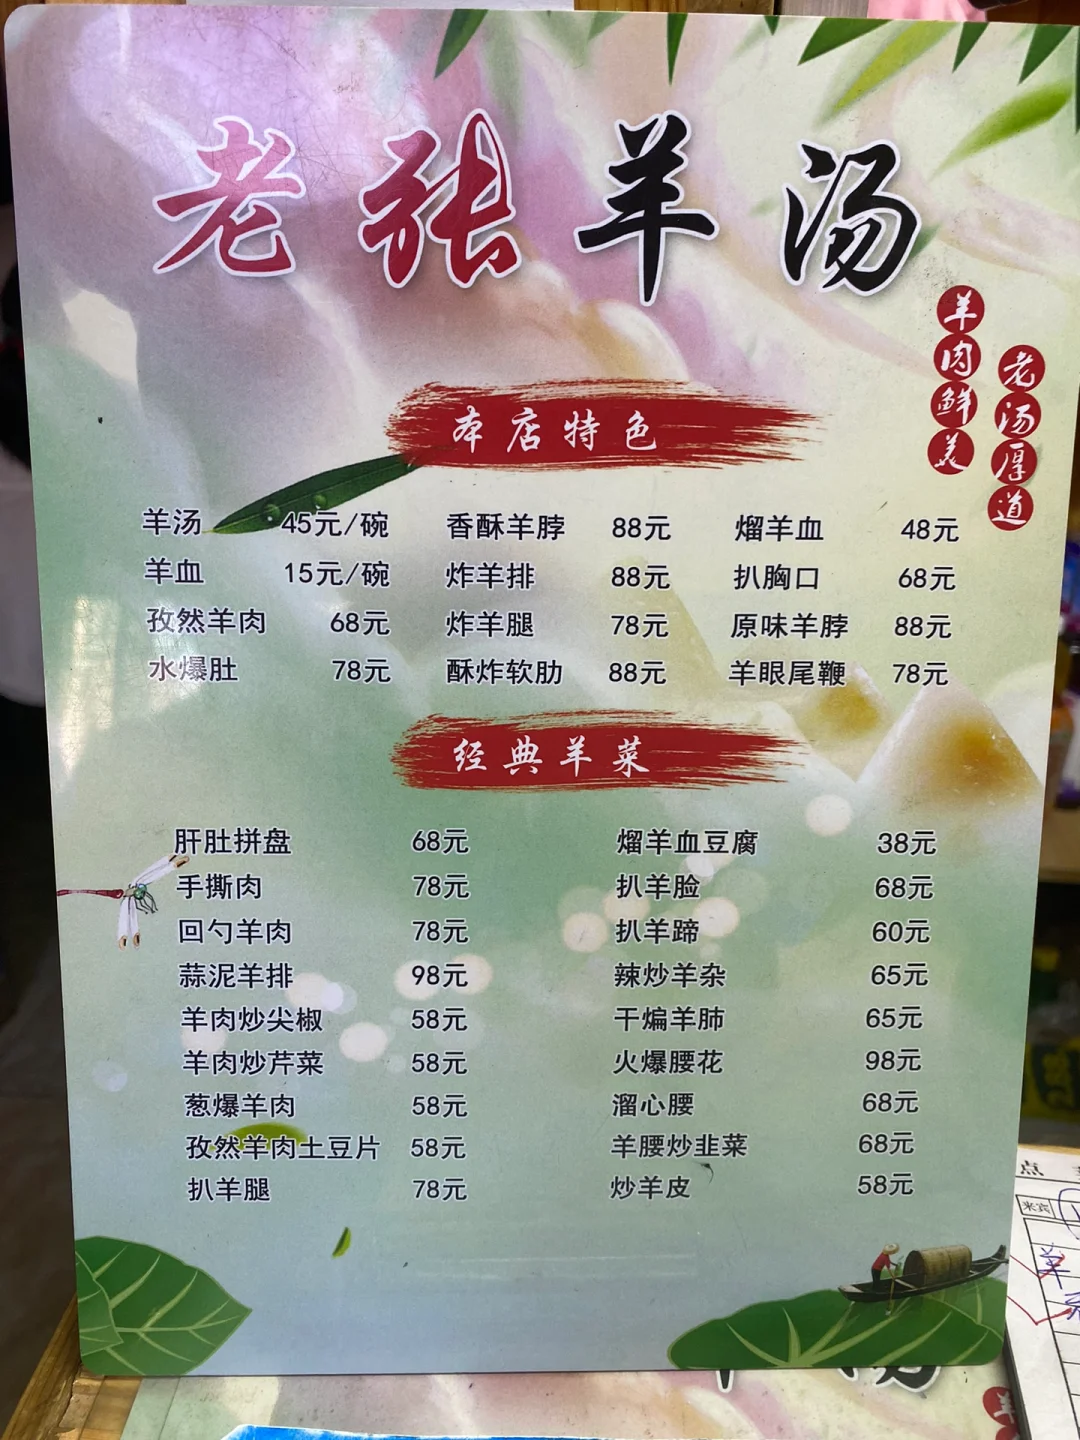 老张羊汤
羊肉鲜美
老汤厚道
本店特色
羊汤 45元/碗 香酥羊脖 88元 熘羊血 48元
羊血 15元/碗 炸羊排 88元 扒胸口 68元
孜然羊肉 68元 炸羊腿 78元 原味羊脖 88元
水爆肚 78元 酥炸软肋 88元 羊眼尾鞭 78元
经典羊菜
肝肚拼盘 68元 熘羊血豆腐 38元
手撕肉 78元 扒羊脸 68元
回勺羊肉 78元 扒羊蹄 60元
蒜泥羊排 98元 辣炒羊杂 65元
羊肉炒尖椒 58元 干煸羊肺 65元
羊肉炒芹菜 58元 火爆腰花 98元
葱爆羊肉 58元 溜心腰 68元
孜然羊肉土豆片 58元 羊腰炒韭菜 68元
扒羊腿 78元 炒羊皮 58元
点